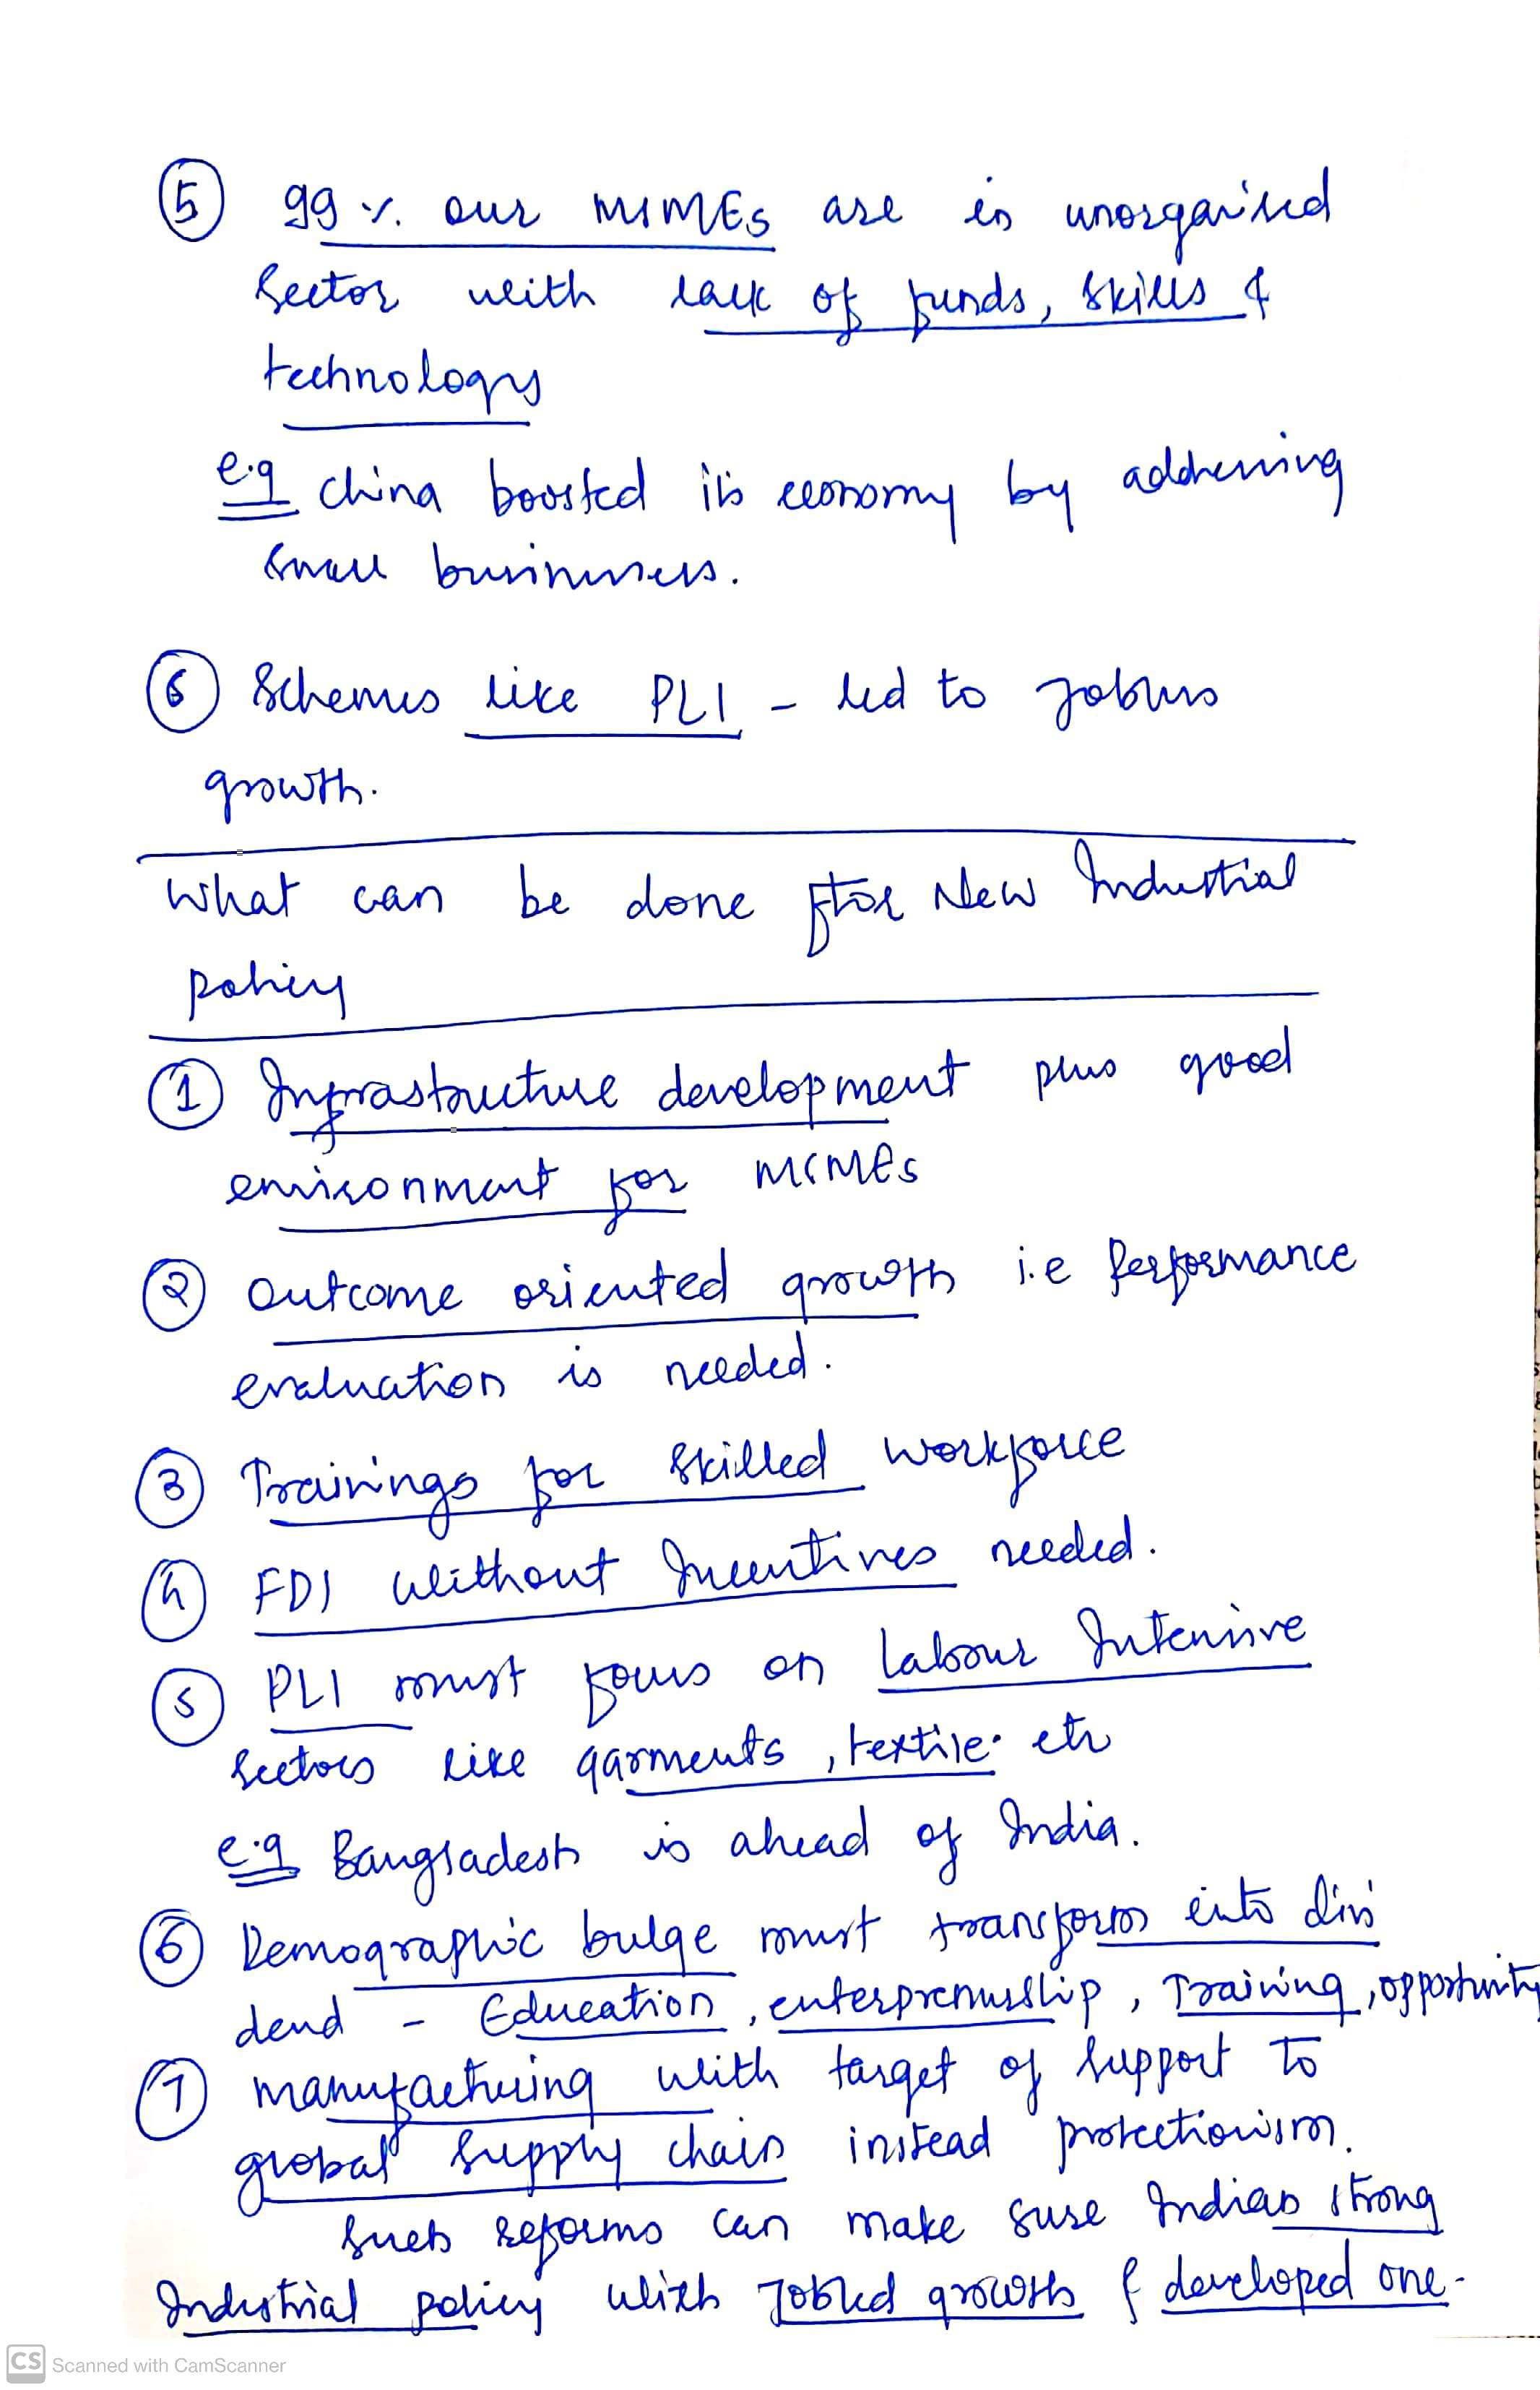 5 99 % our MSMEs are in unorganised
sector with lack of funds, skills &
technology
e.g China boosted its economy by addressing
small businesses.
6 Schemes like PLI - led to Jobless
growth.
What can be done for New Industrial
policy
1 Infrastructure development plus good
environment for MSMEs
2 Outcome oriented growth i.e Performance
evaluation is needed.
3 Trainings for skilled workforce
4 FDI without Incentives needed.
5 PLI must focus on labour Intensive
sectors like garments, textile etc
e.g Bangladesh is ahead of India.
6 Demographic bulge must transform into divi
dend - Education, enterprenuership, Training, opportunity
7 manufacturing with target of support to
global supply chain instead protectionism.
Such reforms can make sure Indias strong
Industrial policy with Jobled growth & developed one.
CS Scanned with CamScanner